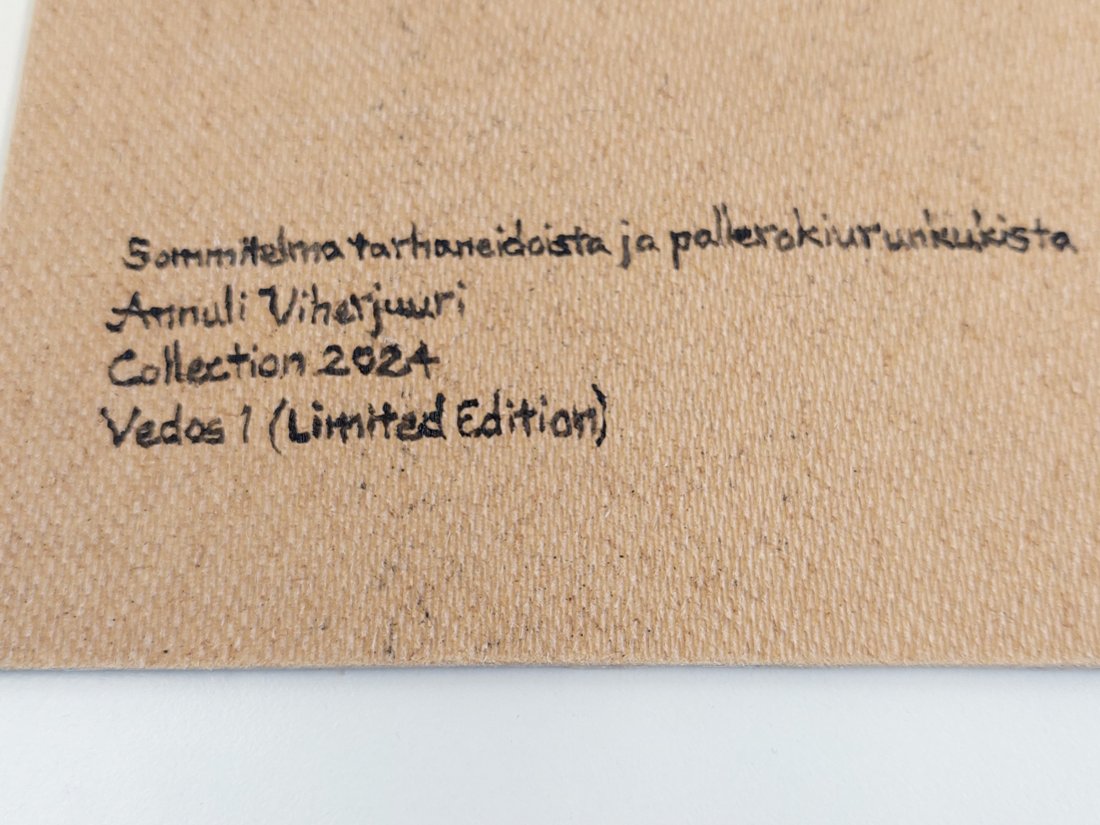 Sommitelma tarhaneidoista ja pallerokiurunkukista
Annuli Viherjuuri
Collection 2024
Vedos 1 (Limited Edition)